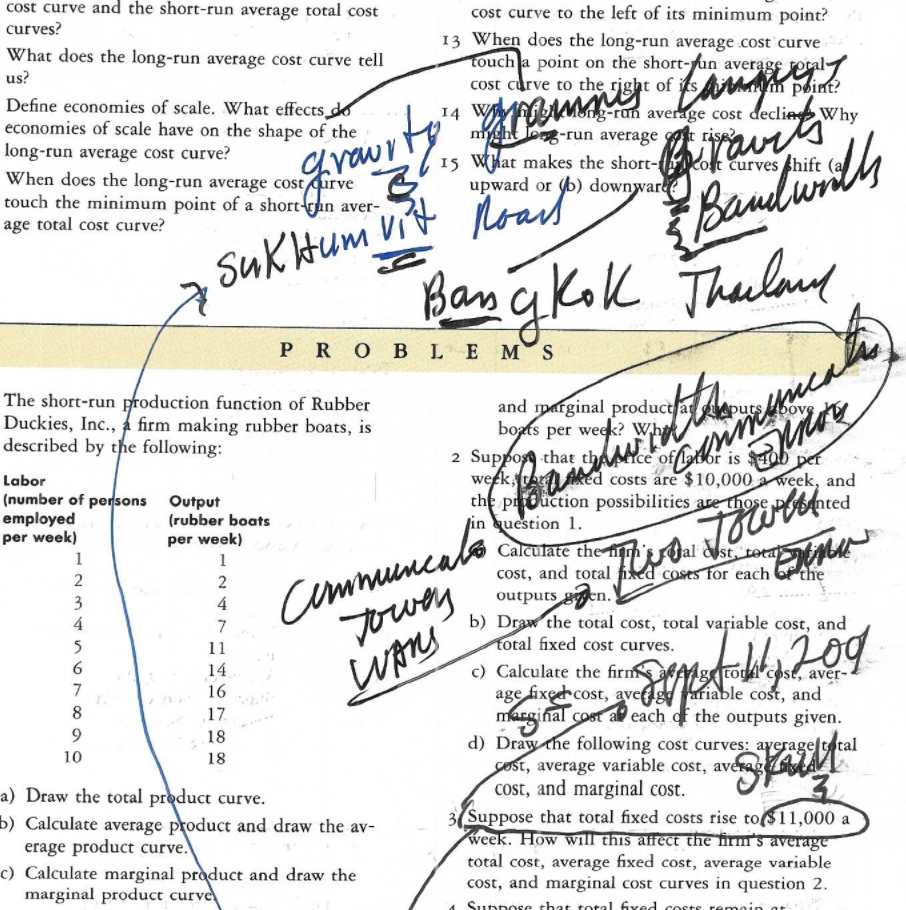 cost curve and the short-run average total cost
curves?
What does the long-run average cost curve tell
us?
Define economies of scale. What effects do
economies of scale have on the shape of the
long-run average cost curve?
When does the long-run average cost curve
touch the minimum point of a short-run aver-
age total cost curve?
cost curve to the left of its minimum point?
13 When does the long-run average cost curve
touch a point on the short-run average total
cost curve to the right of its minimum point?
14 Why might long-run average cost decline? Why
might long-run average cost rise?
15 What makes the short-run cost curves shift (a)
upward or (b) downward?
gravity
SuKHumvit Road
BangKoK Thailand
Bandwidth
PROBLEMS
The short-run production function of Rubber
Duckies, Inc., a firm making rubber boats, is
described by the following:
Labor
(number of persons Output
employed (rubber boats
per week) per week)
1 1
2 2
3 4
4 7
5 11
6 14
7 16
8 17
9 18
10 18
a) Draw the total product curve.
b) Calculate average product and draw the av-
erage product curve.
c) Calculate marginal product and draw the
marginal product curve.
and marginal product at outputs above
boats per week? Why?
2 Suppose that the price of labor is $400 per
week, total fixed costs are $10,000 a week, and
the production possibilities are those presented
in question 1.
a) Calculate the firm's total cost, total variable
cost, and total fixed costs for each of the
outputs given.
b) Draw the total cost, total variable cost, and
total fixed cost curves.
c) Calculate the firm's average total cost, aver-
age fixed cost, average variable cost, and
marginal cost at each of the outputs given.
d) Draw the following cost curves: average total
cost, average variable cost, average fixed
cost, and marginal cost.
3 Suppose that total fixed costs rise to $11,000 a
week. How will this affect the firm's average
total cost, average fixed cost, average variable
cost, and marginal cost curves in question 2.
4 Suppose that total fixed costs remain at
Bandwidths
Towers
WARS
Two Towers
Sept 11, 2001
Skull